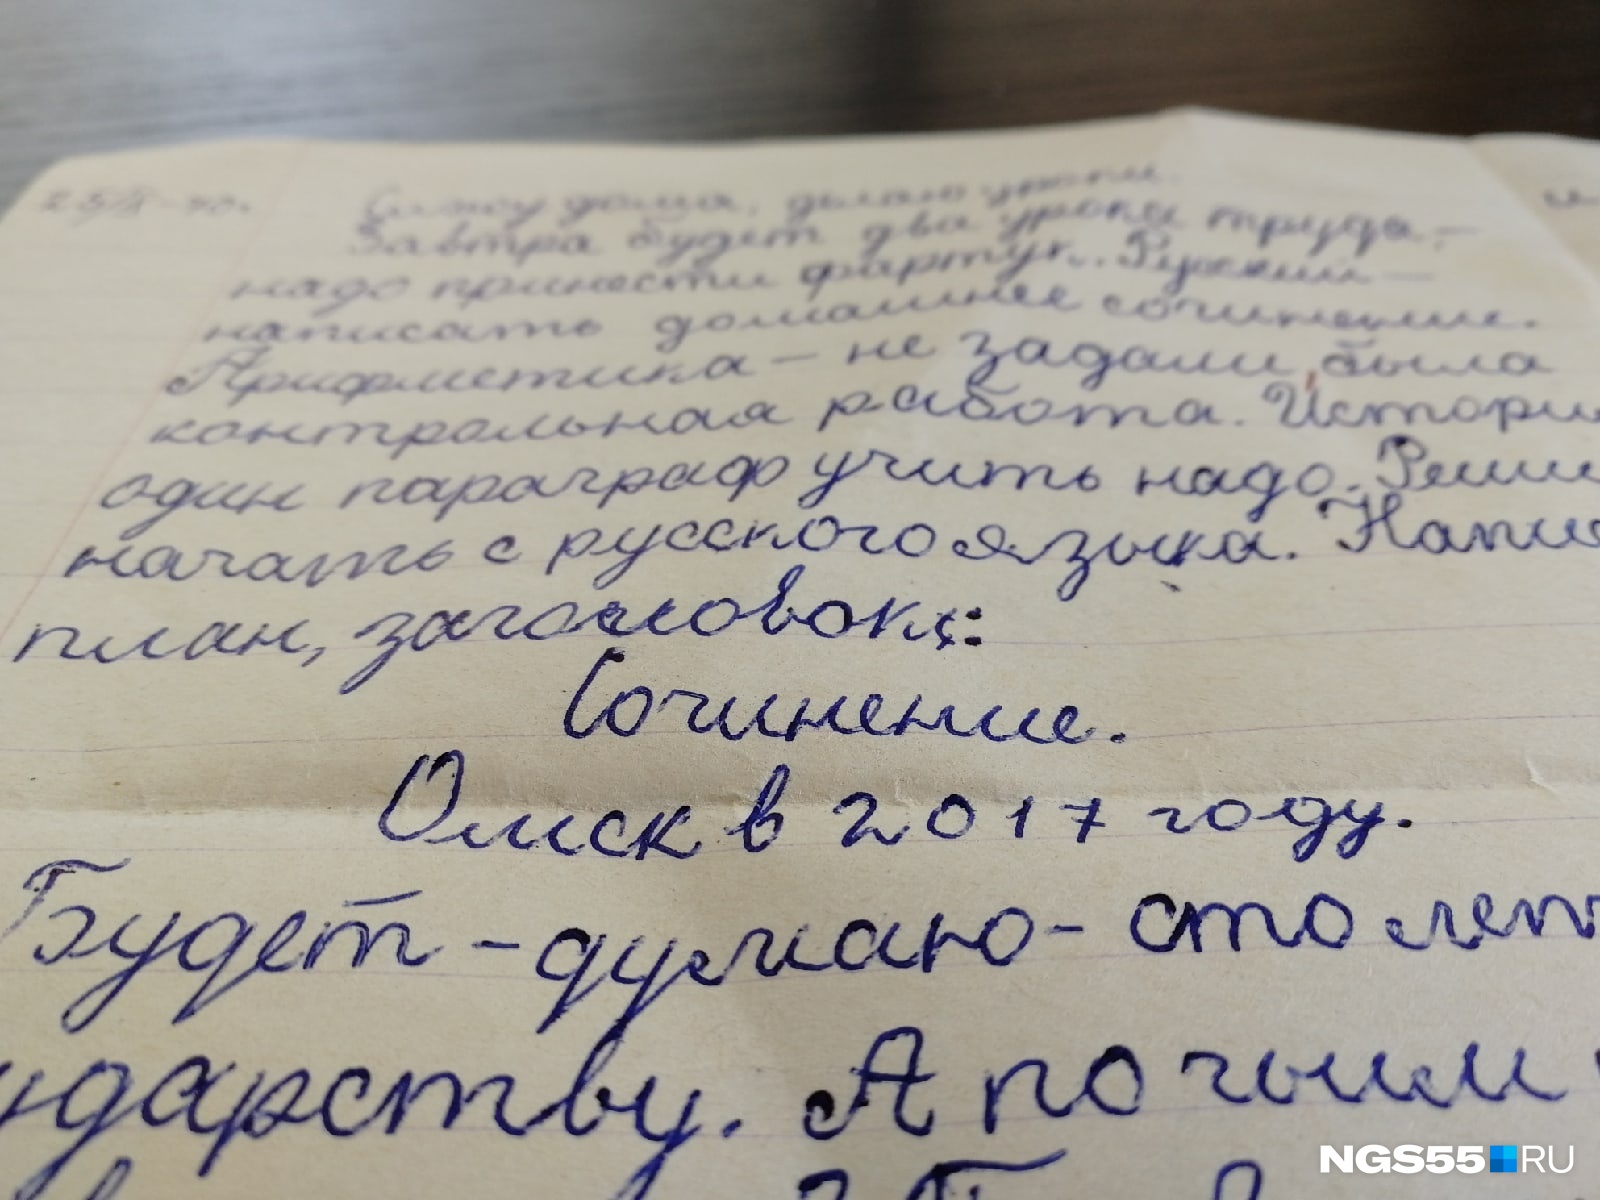 Сижу дома, делаю уроки.
Завтра будет два урока труда, –
надо принести фартук. Русский –
написать домашнее сочинение.
Арифметика – не задали, была
контрольная работа. Истори
один параграф учить надо. Реши
начать с русского языка. Напис
план, заголовок:
Сочинение.
Омск в 2017 году.
Будет – думаю – сто лет
ударству. А по чьим
NGS55.RU